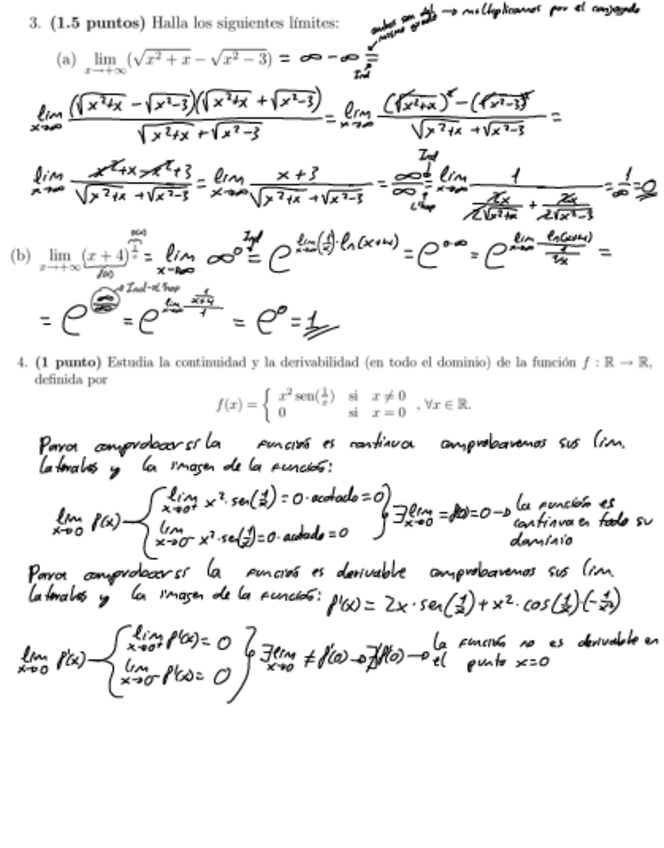 ambos son del mismo grado → multiplicamos por el conjugado
3. (1.5 puntos) Halla los siguientes límites:
(a) lim x→+∞ (√(x²+x) − √(x²−3)) = ∞−∞ = Ind
lim x→∞ (√(x²+x) − √(x²−3))(√(x²+x) + √(x²−3)) / (√(x²+x) + √(x²−3)) = lim x→∞ ((√(x²+x))² − (√(x²−3))²) / (√(x²+x) + √(x²−3)) =
lim x→∞ (x²+x−x²+3) / (√(x²+x) + √(x²−3)) = lim x→∞ (x+3) / (√(x²+x) + √(x²−3)) = ∞/∞ Ind = L'Hop lim x→∞ 1 / (2x/(2√(x²+x)) + 2x/(2√(x²−3))) = 1/∞ = 0
(b) lim x→+∞ (x+4)^(1/x) = lim x→∞ ∞⁰ Ind = e^(lim x→∞ (1/x)·ln(x+4)) = e^(0·∞) = e^(lim x→∞ ln(x+4)/(1/(1/x))) =
= e^(∞/∞) → Ind → L'Hop = e^(lim x→∞ (1/(x+4))/1) = e⁰ = 1
4. (1 punto) Estudia la continuidad y la derivabilidad (en todo el dominio) de la función f : ℝ → ℝ,
definida por
f(x) = { x² sen(1/x) si x ≠ 0
0 si x = 0 , ∀x ∈ ℝ.
Para comprobar si la función es continua comprobaremos sus lim.
laterales y la imagen de la función:
lim x→0 f(x) { lim x→0⁺ x²·sen(1/x) = 0·acotado = 0
lim x→0⁻ x²·sen(1/x) = 0·acotado = 0 } ∃ lim x→0 = f(0) = 0 → la función es continua en todo su dominio
Para comprobar si la función es derivable comprobaremos sus lim.
laterales y la imagen de la función: f'(x) = 2x·sen(1/x) + x²·cos(1/x)·(−1/x²)
lim x→0 f'(x) { lim x→0⁺ f'(x) = 0
lim x→0⁻ f'(x) = 0 } ∃ lim x→0 ≠ f'(0) → ∄ f'(0) → la función no es derivable en el punto x=0